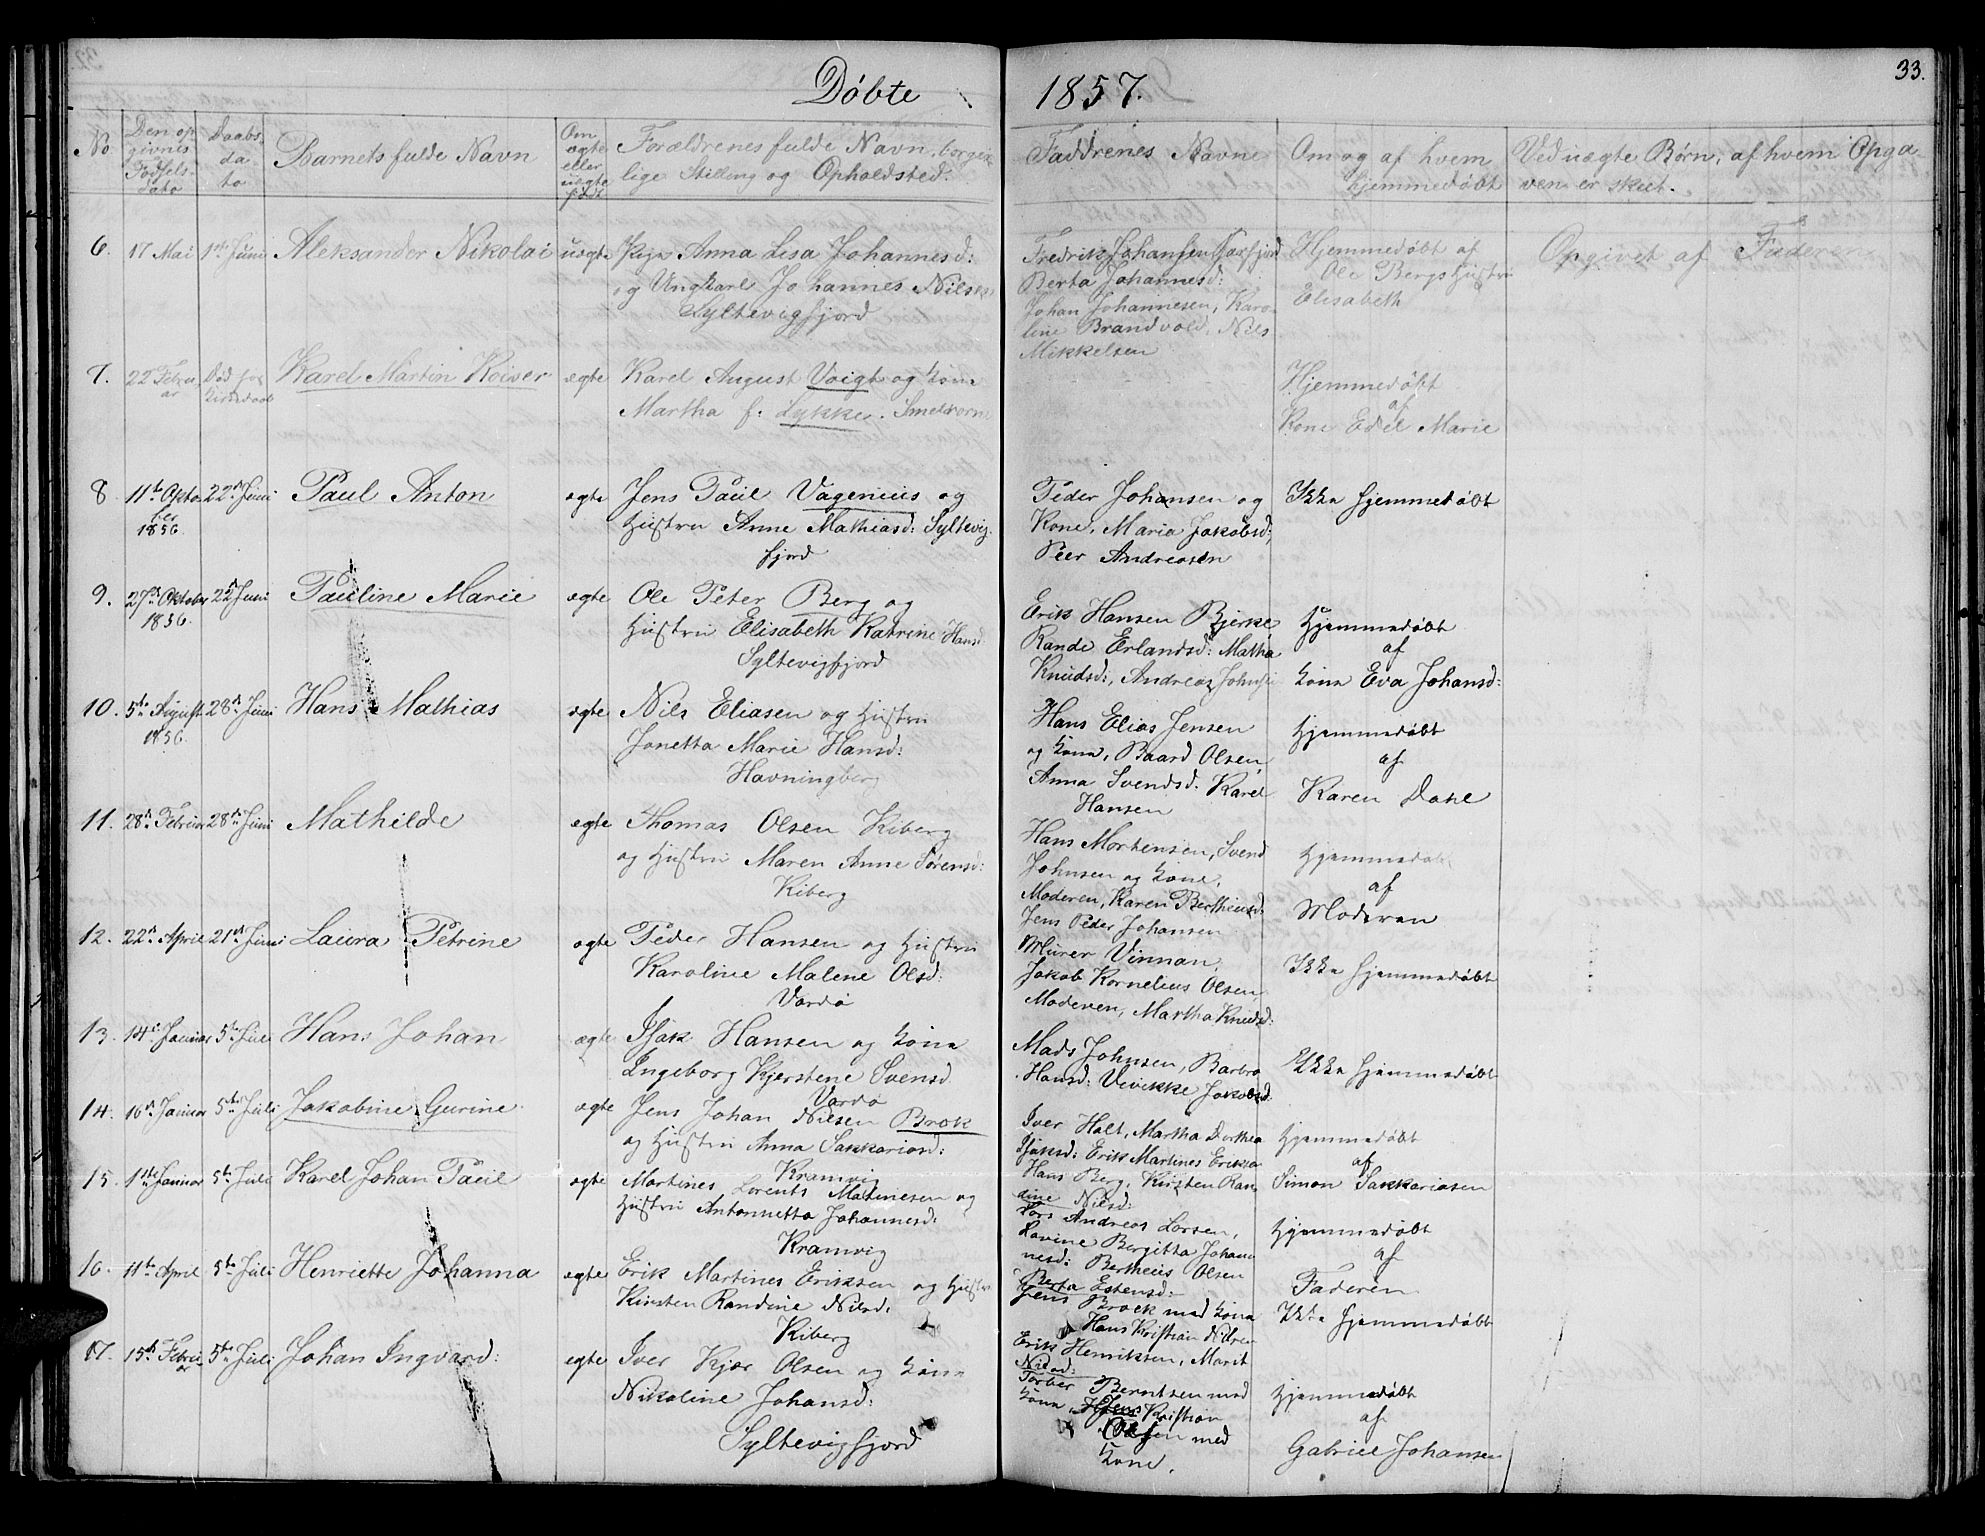 Døbte 1857. 33.
No. Den op givnes Fødsels dato Daabs da to Barnets fulde Navn Om ægte eller uægte født Forældrenes fulde Navn, borger
lige Stilling og Opholdsted.
Faddrenes Navne Om og af hvem hjemmedøbt Ved uægte Børn, af hvem Opga
ven er skeet.
6. 17 Mai 1ste Juni Aleksander Nikolai uægte Pige Anna Lisa Johannesd:
og Ungkarl Johannes Nils
Syltevigfjord
Fredrik Johansen
Berta Johannesd:
Johan Johannesen, Karo
line Brandvold, Nils
Mikkelsen
Hjemmedøbt af
Ole Bergs Hustru
Elisabeth
Opgivet af Faderen
7. 22 Febru ar Død før Karel Martin Koiver ægte Karel August Voigt og Kone
Martha f. Lykke.
Hjemmedøbt
af
Kone Edel Marie
8. 11te Okto ber 1856 22n Juni Paul Anton ægte Jens Paul Vagenius og
Hustru Anne Mathiasd: Syltevig
fjord
Peder Johansen og
Kone, Maria Jakobsd:,
Peer Andreasen
Ikke hjemmedøbt
9. 27n Oktober 1856. 22n Juni Pauline Marie ægte Ole Peter Berg og
Hustru Elisabeth Katrine Hansd.
Syltevigfjord
Erik Hansen Bjerke,
Rande Erlandsd: Matha
Knudsd:, Andreas
Hjemmedøbt
af
Kone Eva Johansd:
10. 5te August 1856. 28n Juni Hans Mathias ægte Nils Eliasen og Hustru
Jonetta Marie Hansd:
Havningberg
Hans Elias Jensen
og Kone, Baard Olsen,
Anna Svendsd. Karel
Hansen
Hjemmedøbt
af
Karen Dahl
11. 28n Februar 28n Juni Mathilde ægte Thomas Olsen Kiberg
og Hustru Maren Anne Sørensd:
Kiberg
Hans Mortensen, Svend
Johnsen og Kone,
Moderen, Karen Bertheusd:
Hjemmedøbt
af
Moderen
12. 22n April 21n Juni Laura Petrine ægte Peder Hansen og Hustru
Karoline Malene Olsd:
Vardø
Jens Peder Johansen
Murer Vinnan,
Jakob Kornelius Olsen,
Moderen, Martha Knudsd:
Ikke hjemmedøbt
13. 14n Januar 5te Juli Hans Johan ægte Isak Hansen og Kone
Ingeborg Kjerstene Svensd
Vardø
Mads Johnsen, Barbro
Hansd: Vivikke Jakobsd:
Ikke hjemmedøbt
14. 16n Januar 5te Juli Jakobine Gurine ægte Jens Johan Nilsen Brok
og Hustru Anna Sakkariasd:
Kramvig
Iver Holt, Martha Dorthea
Isaksd: Erik Martines Eriksen
Hjemmedøbt
af
Simon Sakkariasen
15. 11te Januar 5te Juli Karel Johan Paul ægte Martines Lorents Matinesen og
Hustru Antonnetta Johannesd:
Kramvig
Hans Berg, Kirsten Ran
dine Nilsd:
Lars Andreas Larsen,
Lovine Bergitta Johan
nesd: Bertheus Olsen
Berta Estensd:
Hjemmedøbt
af
Faderen
16. 11te April 5te Juli Henriette Johanna ægte Erik Martines Eriksen og Hustru
Kirsten Randine Nilsd:
Kiberg
Jens Brock med Kone
Hans Kristian Nilsen
Erik Henriksen, Marit
Nilsd:
Ikke hjemmedøbt
17. 15n Febru ar 5te Juli Johan Ingvard: ægte Iver Kjær Olsen og Kone
Nikoline Johansd:
Syltevigfjord
Torber Berntsen med
Kone, Kristian
Olsen med
Kone.
Hjemmedøbt
af
Gabriel Johansen